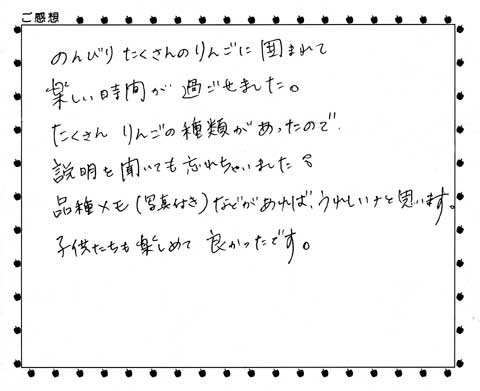 ご感想
のんびり たくさんのりんごに 囲まれて
楽しい時間が 過ごせました。
たくさん りんごの種類があったので
説明を聞いても忘れちゃいました
品種メモ(写真付き)などがあれば、うれしいナと思います。
子供たちも楽しめて 良かったです。